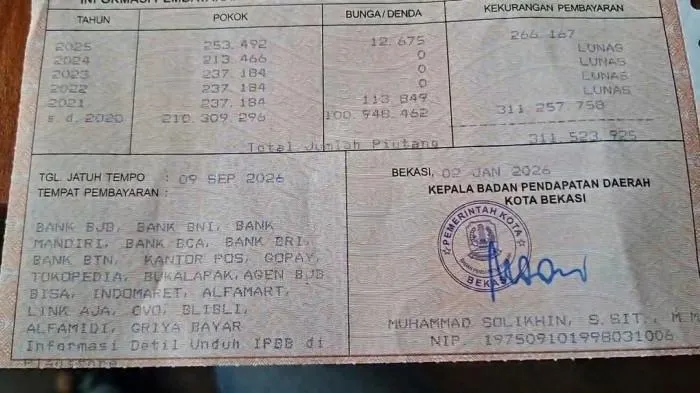 INFORMASI PEMBAYARAN
TAHUN POKOK BUNGA/DENDA KEKURANGAN PEMBAYARAN
2025 253.492 12.675 266.167
2024 213.466 0 LUNAS
2023 237.184 0 LUNAS
2022 237.184 0 LUNAS
2021 237.184 113.849 LUNAS
s.d.2020 210.309.296 100.948.462 311.257.758
Total Jumlah Piutang 311.523.925
TGL JATUH TEMPO : 09 SEP 2026
TEMPAT PEMBAYARAN :
BANK BJB, BANK BNI, BANK
MANDIRI, BANK BCA, BANK BRI,
BANK BTN, KANTOR POS, GOPAY,
TOKOPEDIA, BUKALAPAK,AGEN BJB
BISA, INDOMARET, ALFAMART,
LINK AJA, OVO, BLIBLI,
ALFAMIDI, GRIYA BAYAR
Informasi Detil Unduh IPBB di
BEKASI, 02 JAN 2026
KEPALA BADAN PENDAPATAN DAERAH
KOTA BEKASI
PEMERINTAH KOTA
BEKASI
MUHAMMAD SOLIKHIN, S.SIT., M.M
NIP. 197509101998031006